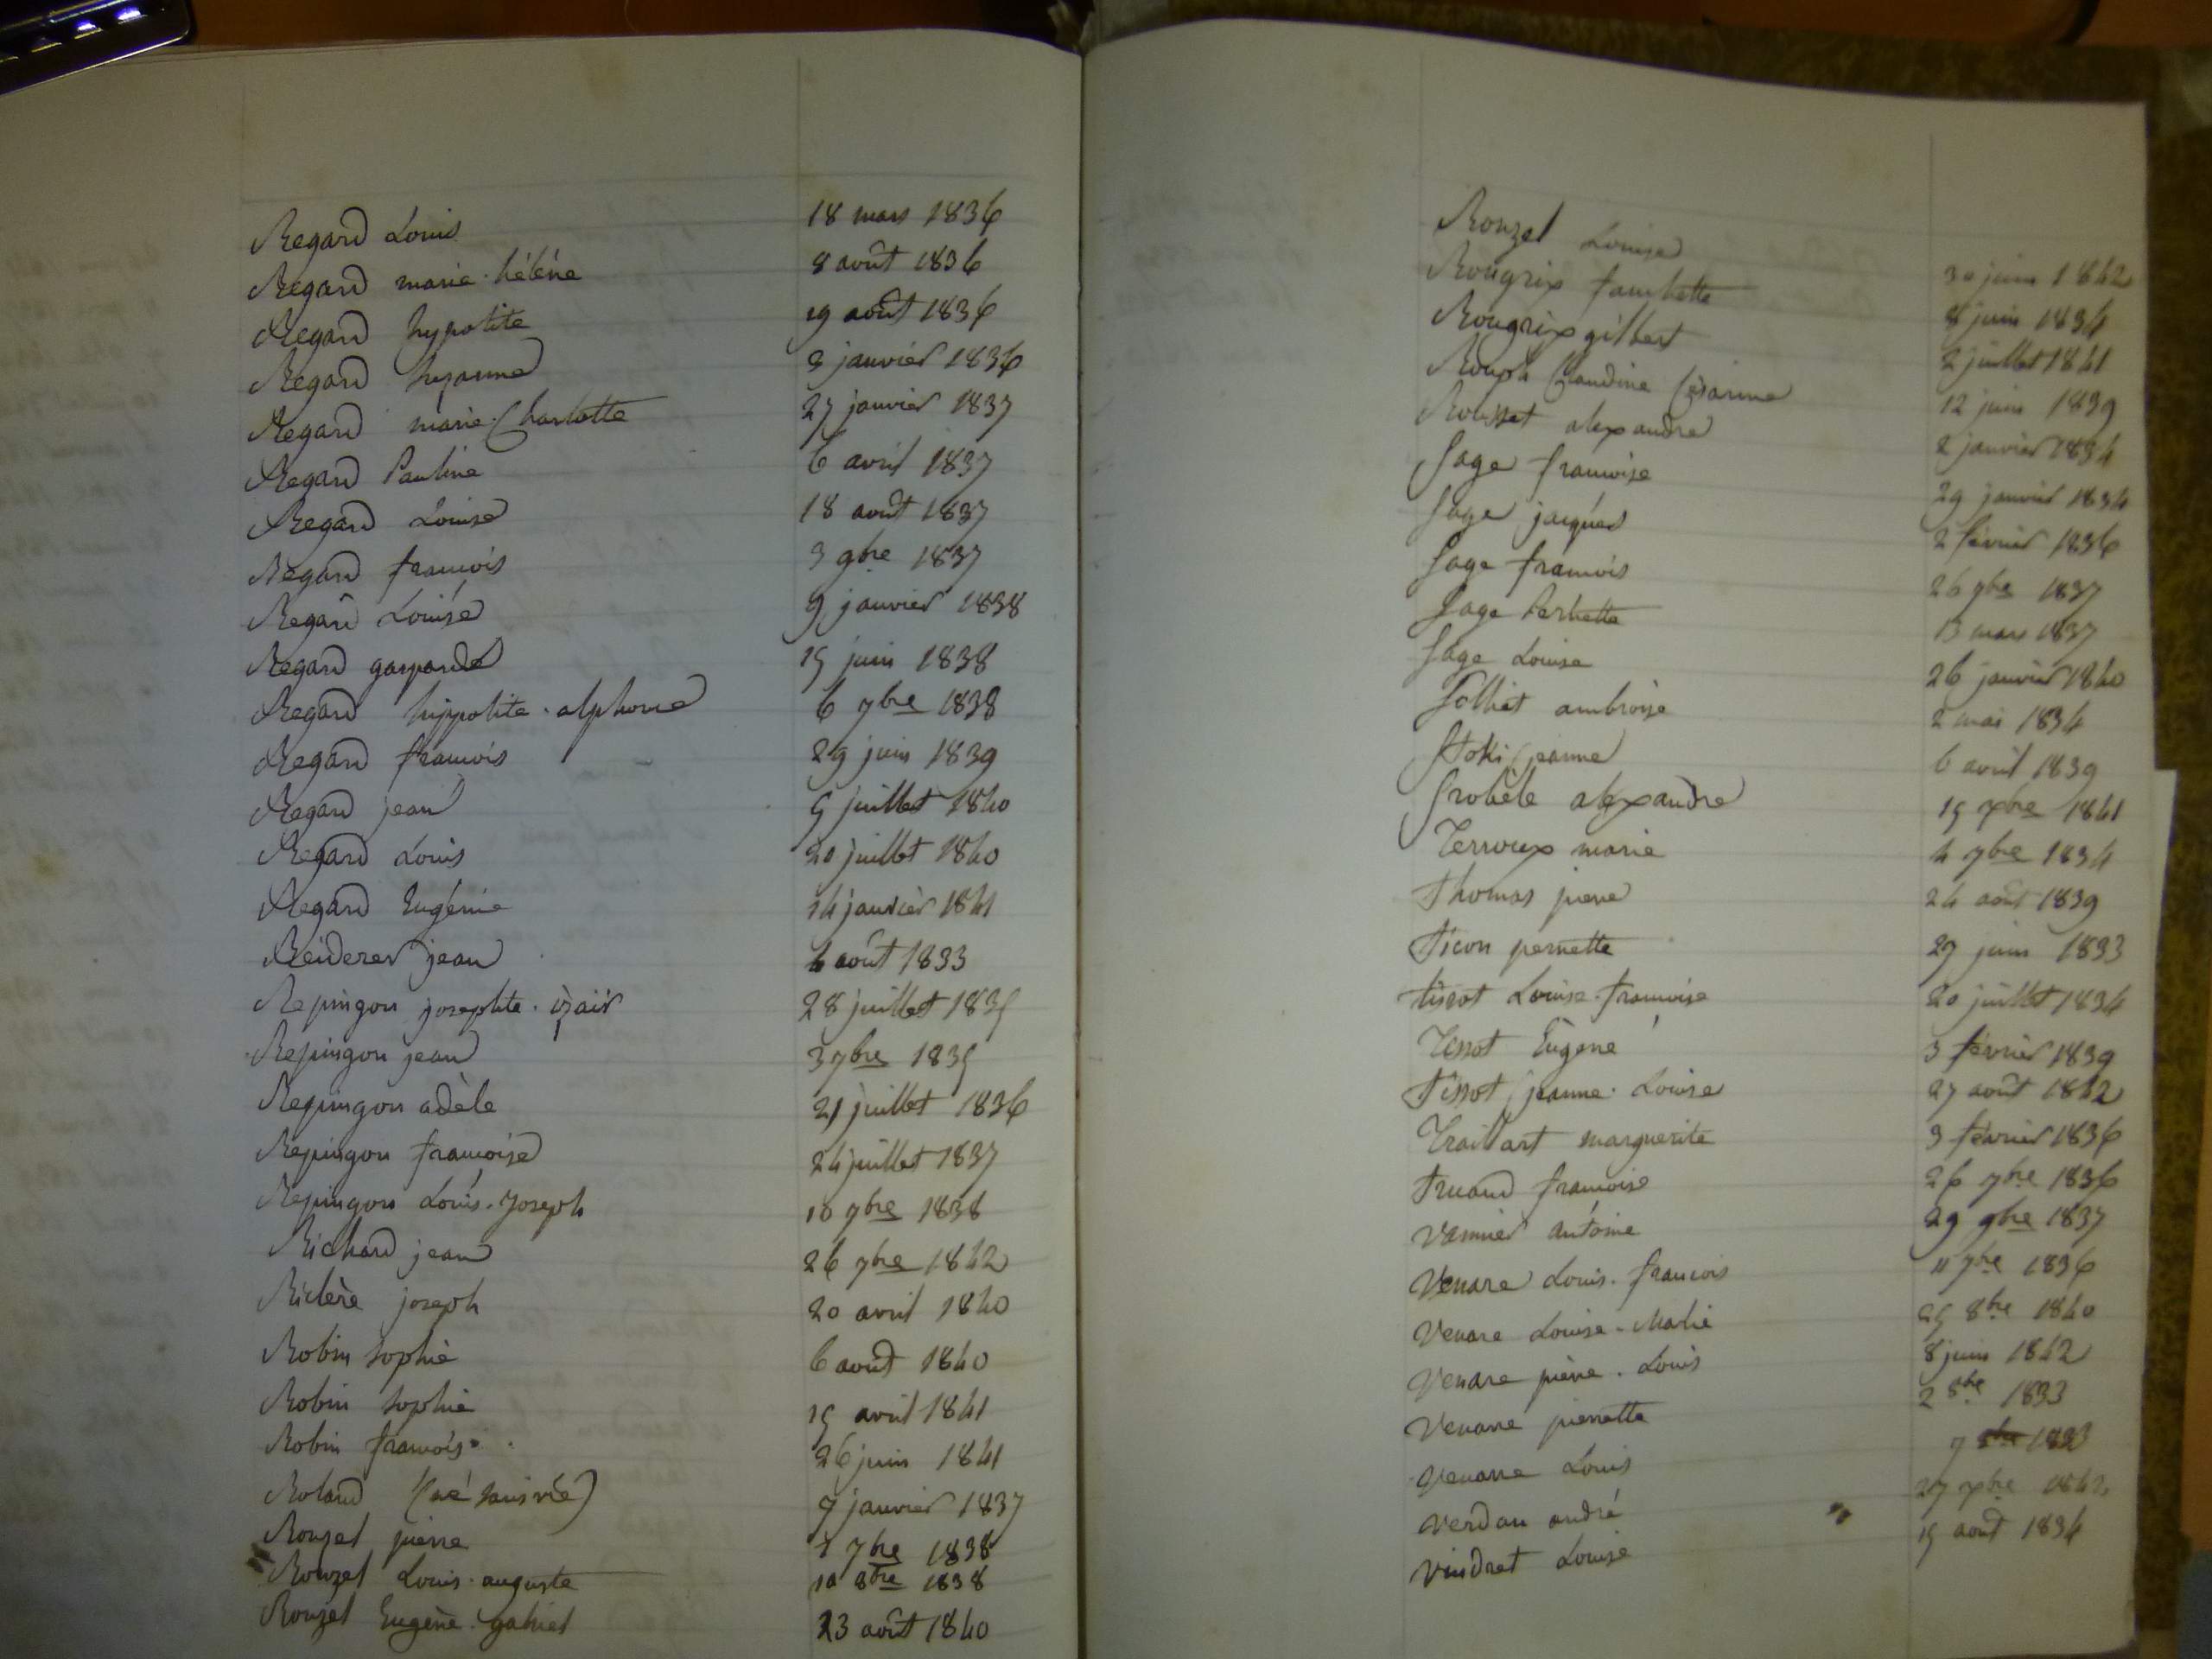 Regard Louis 18 mars 1836
Regard marie-hélène 8 août 1836
Regard hypolite 19 août 1836
Regard 3 janvier 1836
Regard marie-Charlotte 27 janvier 1837
Regard Pauline 6 avril 1837
Regard Louise 18 août 1837
Regard francois 3 9bre 1837
Regard Louise 9 janvier 1838
Regard gasparde 15 juin 1838
Regard hippolite-alphonse 6 7bre 1838
Regard francois 29 juin 1839
Regard jean 5 juillet 1840
Regard Louis 20 juillet 1840
Regard Eugénie 14 janvier 1841
Reiderer jean 6 août 1833
Repingon josephte. 28 juillet 1835
Repingon jean 3 7bre 1835
Repingon adèle 21 juillet 1836
Repingon francoise 24 juillet 1837
Repingon Louis-Joseph 10 7bre 1838
Richard jean 26 7bre 1842
joseph 20 avril 1840
Robin sophie 6 août 1840
Robin sophie 15 avril 1841
Robin francois 26 juin 1841
Roland (né sans vie) 7 janvier 1837
Rouzet pierre 7 7bre 1838
Rouzet Louis-auguste 10 8bre 1838
Rouzet Eugène-gabriel 23 août 1840
Rouzet Louise 30 juin 1842
Rougrix fanchette 8 juin 1834
Rougrix gilbert 2 juillet 1841
Rouph Claudine Césarine 12 juin 1839
Rousset alexandre 2 janvier 1834
Sage francoise 29 janvier 1834
Sage jacques 2 février 1836
Sage francois 26 9bre 1837
Sage 13 mars 1837
Sage Louise 26 janvier 1840
Solliet ambroise 2 mai 1834
Stoki jeanne 6 avril 1839
alexandre 15 xbre 1841
Terroux marie 4 7bre 1834
Thomas pierre 24 août 1839
Ticon pernette 27 juin 1833
tissot Louise-francoise 20 juillet 1834
Tissot Eugène 3 février 1839
Tissot jeanne-Louise 27 août 1842
Traillart marguerite 3 février 1836
Truand francoise 26 7bre 1836
Vannier antoine 29 9bre 1837
Venare Louis-francois 11 7bre 1836
Venare Louise-Marie 25 8bre 1840
Venare pierre-Louis 8 juin 1842
Venare pierrette 2 8bre 1833
Venare Louis 7 1833
Verdan andré 27 xbre 1842
Vindret Louise 15 août 1834